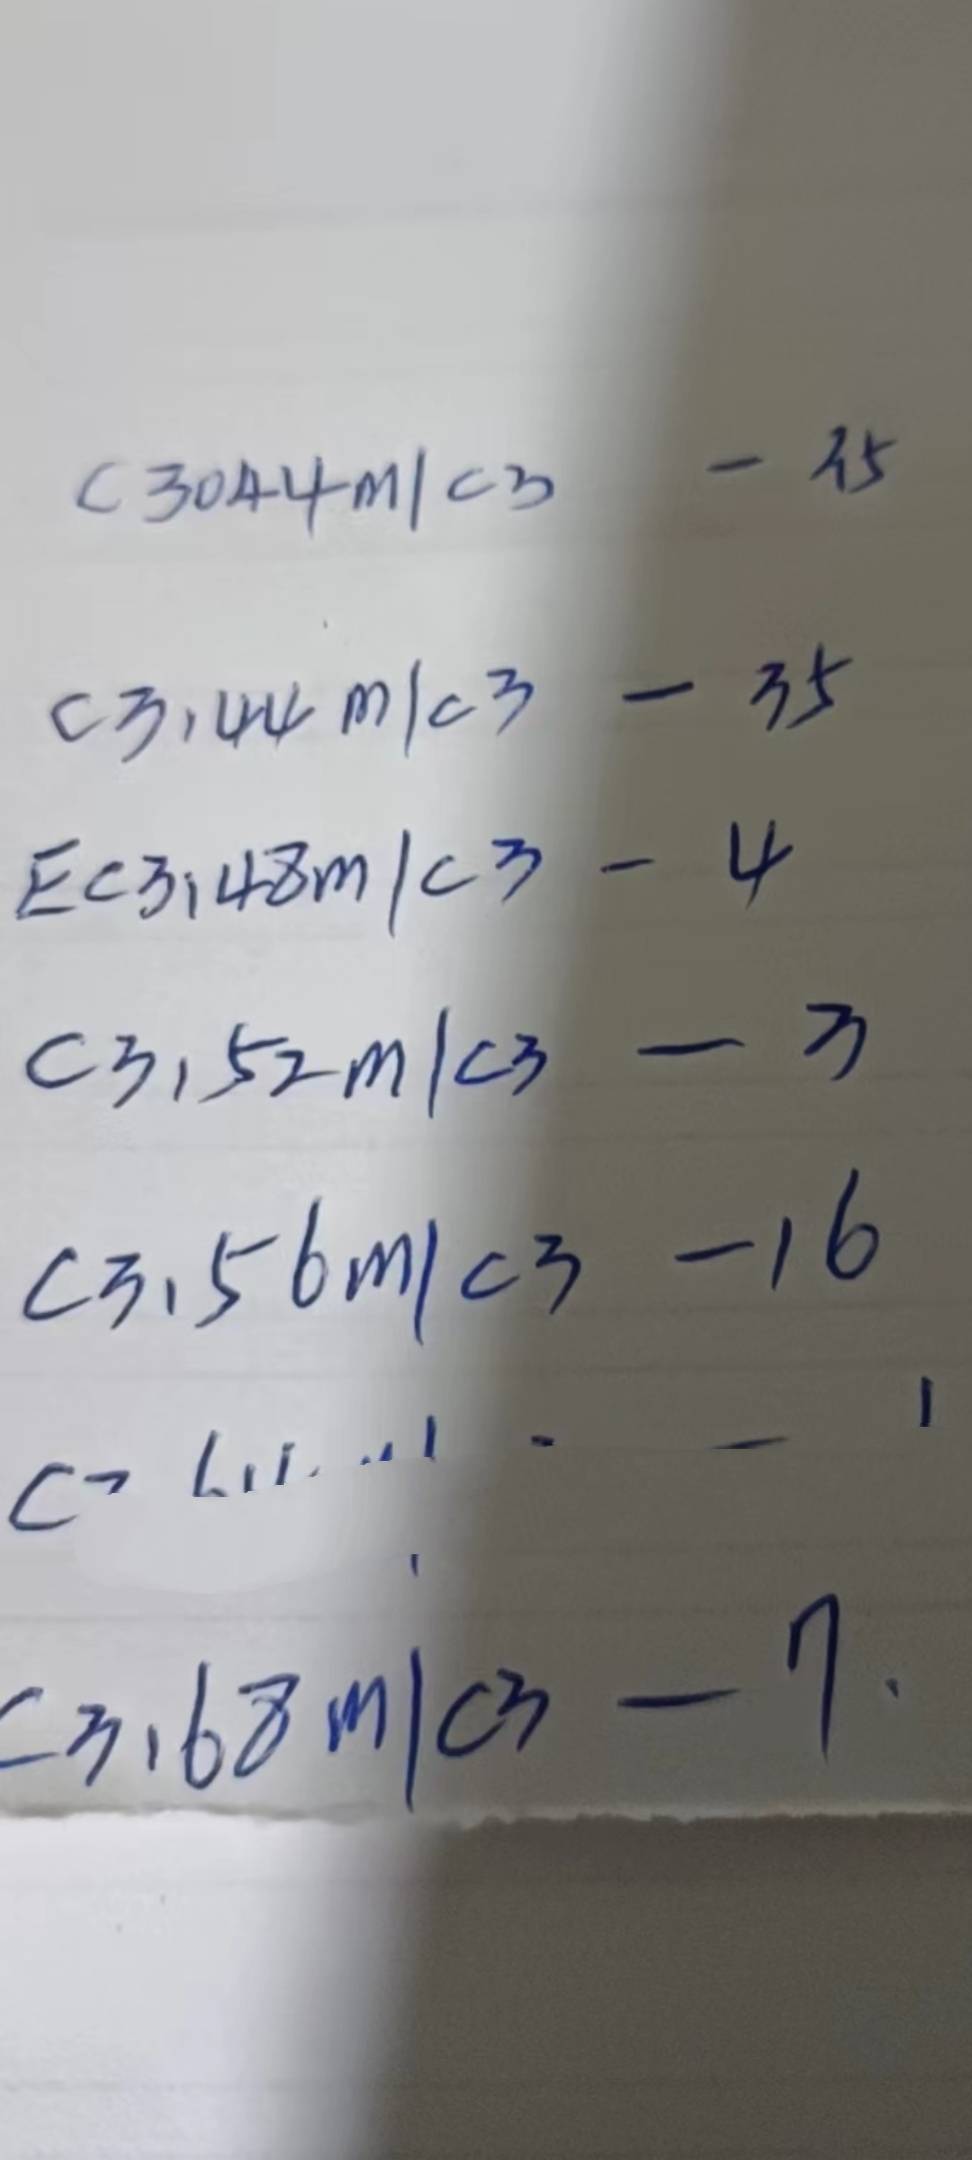 C3044m/c3 - 35
C3,44m/c3 - 35
EC3,48m/c3 - 4
C3,52m/c3 - 3
C3,56m/c3 - 16
C3,68m/c3 - 7.